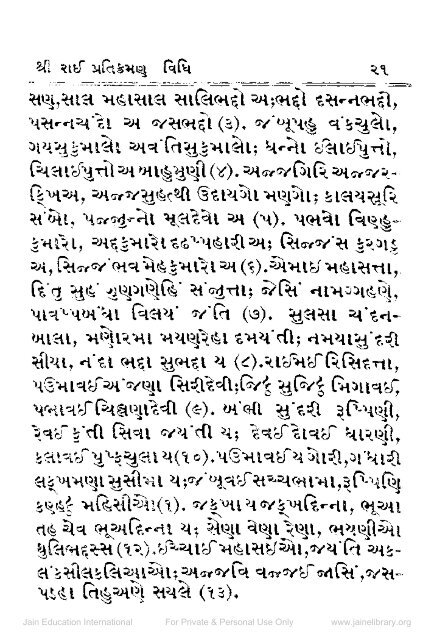 શ્રી રાઈ પ્રતિક્રમણ વિધિ ૨૧
સણ,સાલ મહાસાલ સાલિભદ્દો અ;ભદ્દો દસન્નભદ્દો,
પસન્નચંદો અ જસભદ્દો (૩). જંબૂપહુ વંકચુલો,
ગયસુકુમાલો અવંતિસુકુમાલો; ધન્નો ઈલાઈપુત્તો,
ચિલાઈપુત્તો અ બાહુમુણી (૪). અજ્જગિરિ અજ્જર-
ક્ખિઅ, અજ્જસુહત્થી ઉદાયગો મણગો; કાલયસૂરિ
સંબો, પજ્જુન્નો મૂલદેવો અ (૫). પભવો વિણ્હુ-
કુમારો, અદ્દકુમારો દઢપ્પહારી અ; સિજ્જંસ કુરગડુ
અ, સિજ્જંભવ મેહકુમારો અ (૬).એમાઇ મહાસત્તા,
દિંતુ સુહં ગુણગણેહિં સંજુત્તા; જેસિં નામગ્ગહણે,
પાવપ્પબંધા વિલયં જંતિ (૭). સુલસા ચંદન-
બાલા, મણોરમા મયણરેહા દમયંતી; નમયાસુંદરી
સીયા, નંદા ભદ્દા સુભદ્દા ય (૮).રાઈમઈ રિસિદત્તા,
પઉમાવઈ અંજણા સિરીદેવી;જિટ્ઠ સુજિટ્ઠ મિગાવઈ,
પભાવઈ ચિલ્લણાદેવી (૯). બંભી સુંદરી રૂપ્પિણી,
રેવઈ કુંતી સિવા જયંતી ય; દેવઈ દોવઈ ધારણી,
કલાવઈ પુપ્ફચુલા ય(૧૦).પઉમાવઈ ય ગોરી,ગંધારી
લક્ખમણા સુસીમા ય;જંબૂવઈ સચ્ચભામા,રૂપ્પિણિ
કણ્હટ્ઠ મહિસીઓ(૧). જક્ખા ય જક્ખદિન્ના, ભૂઆ
તહ ચેવ ભૂઅદિન્ના ય; સેણા વેણા રેણા, ભયણીઓ
થુલિભદ્દસ્સ (૧૨).ઈચ્ચાઈ મહાસઈઓ,જયંતિ અક-
લંકસીલકલિઆઓ; અજ્જવિ વજ્જઈ જાસિં,જસ-
પડહો તિહુઅણે સયલે (૧૩).
Jain Education International For Private & Personal Use Only www.jainelibrary.org